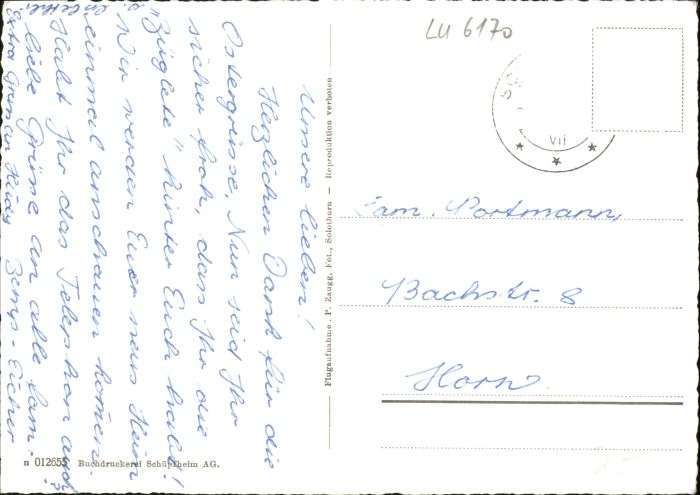 LU 6170
VII
Unsere lieben!
Herzlichen Dank für die
Ostergrüsse. Nun seid Ihr
sicher froh, dass Ihr die
"Büglete" hinter Euch habt!
Wir werden Euer neues Heim
einmal anschauen kommen.
Habt Ihr das Telephon auch
liebe Grüsse an alle Fam.
Extra Grüsse
Flugaufnahme: P. Zaugg, Fot., Solothurn — Reproduktion verboten
Fam. Portmann,
Bachstr. 8
Horw
n 012655 Buchdruckerei Schüpfheim AG.